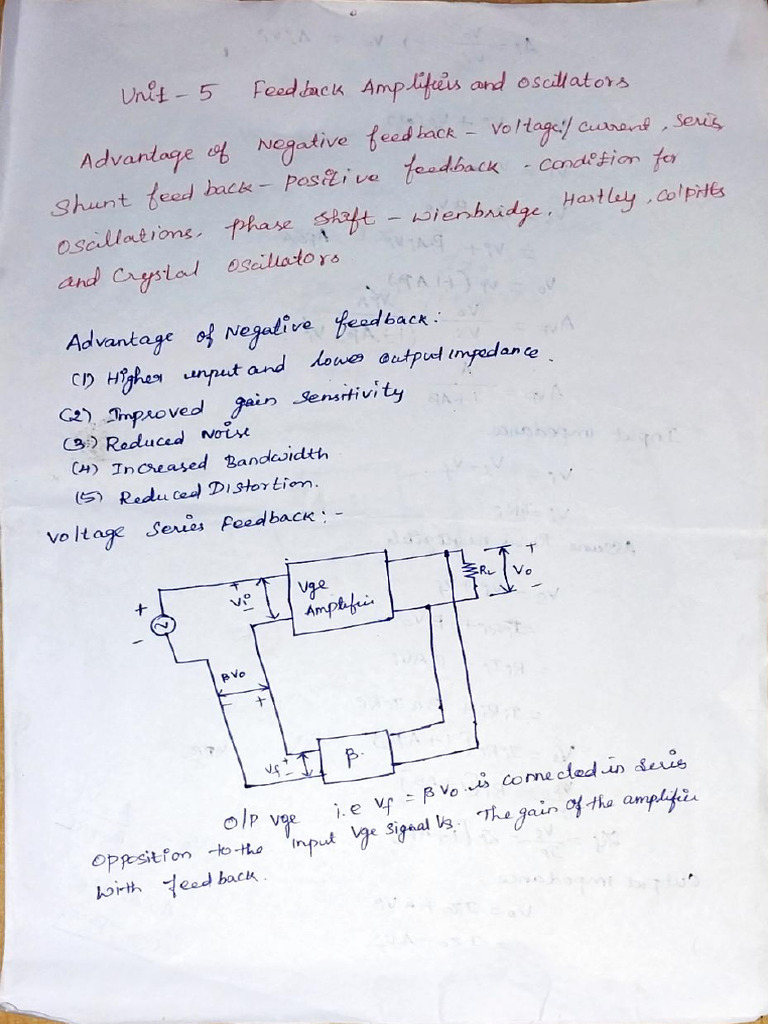 Unit - 5 Feedback Amplifiers and oscillators
Advantage of Negative feedback - Voltage / current, Series
Shunt feed back - Positive feedback - condition for
Oscillations, phase shift - wienbridge, Hartley, Colpitts
and Crystal Oscillators
Advantage of Negative feedback:
(1) Higher input and lower output impedance.
(2) Improved gain Sensitivity
(3) Reduced Noise
(4) Increased Bandwidth
(5) Reduced Distortion.
Voltage Series Feedback: -
+
-
+
Vi
-
Vge
Amplifier
RL
+
Vo
-
βVo
-
+
Vf
+
-
β
O/P Vge i.e Vf = βVo is connected in Series
Opposition to the input Vge signal Vs. The gain of the amplifier
with feedback.